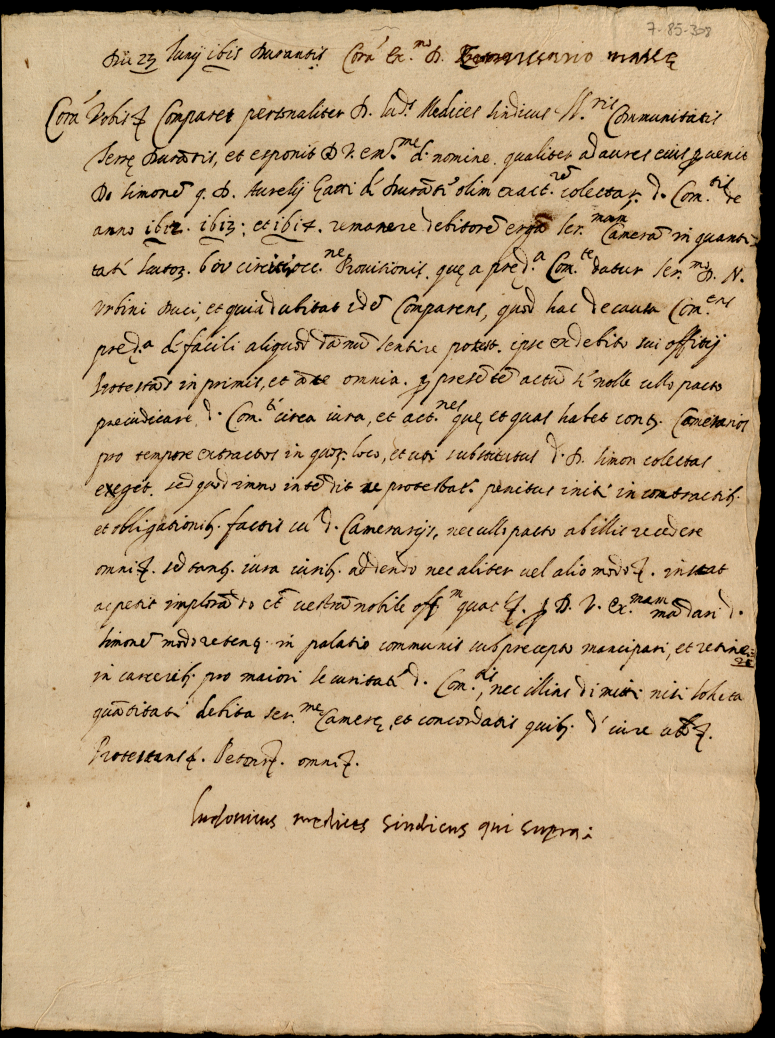 7-85-308
Die 23 Iunij 1615 Durantis Corā Ex.mo D. Commissario Massę
Corā Vobis Comparet personaliter D. Lud.s Medices Sindicus Communitatis
Terrę Durātis, et exponit D. V. d. nomine, qualiter ad aures eius ꝑuenit
D. Simonē q. D. Aurelij Gatti d' Durāti olim exact.rem colectar. d. Com.tis de
anno 1612. 1613: et 1614. remanere debitorē ergā Ser.mam Camerā in quanti
tati Scutor. circiter occ.ne Prouisionis, quę a pred.a Com.te datur Ser.mo D. N.
Vrbini Duci, et quia dubitat idē Comparens, quod hac de causa Com.
pred.a d' facili aliquod dānū sentire potest. ipse ex debito sui offitij
Protestās in primis, et āte omnia. ꝑ presētē actū nolle ullo pacto
preiudicare d. Com.ti circa iura, et act.nes que, et quas habet cont. Camerarios
pro tempore extractos in quor. loco, et uti substitutus d. D. Simon colectas
exeget. sed quod immo intēdit ac protestat. penitus initi in contractib.
et obligationib. factis cū d. Camerarijs, nec ullo pacto ab illis recedere
omni. sed tanq. iura iurib. addendo nec aliter uel alio modo. instat
ac petit implorādo uestrū nobile off.m ꝑ D. V. Ex.mam mādari d.
Simonē modo retent. in palatio communis sub precepto mancipari, et retineri
in carcerib. pro maiori securitate d. Com.tis, nec illius dimitti nisi soluta
quātitati debita Ser.me Camerę, et concordatis quib. d' iure
Protestans. Petens. omni.
Ludouicus medices sindicus qui supra: